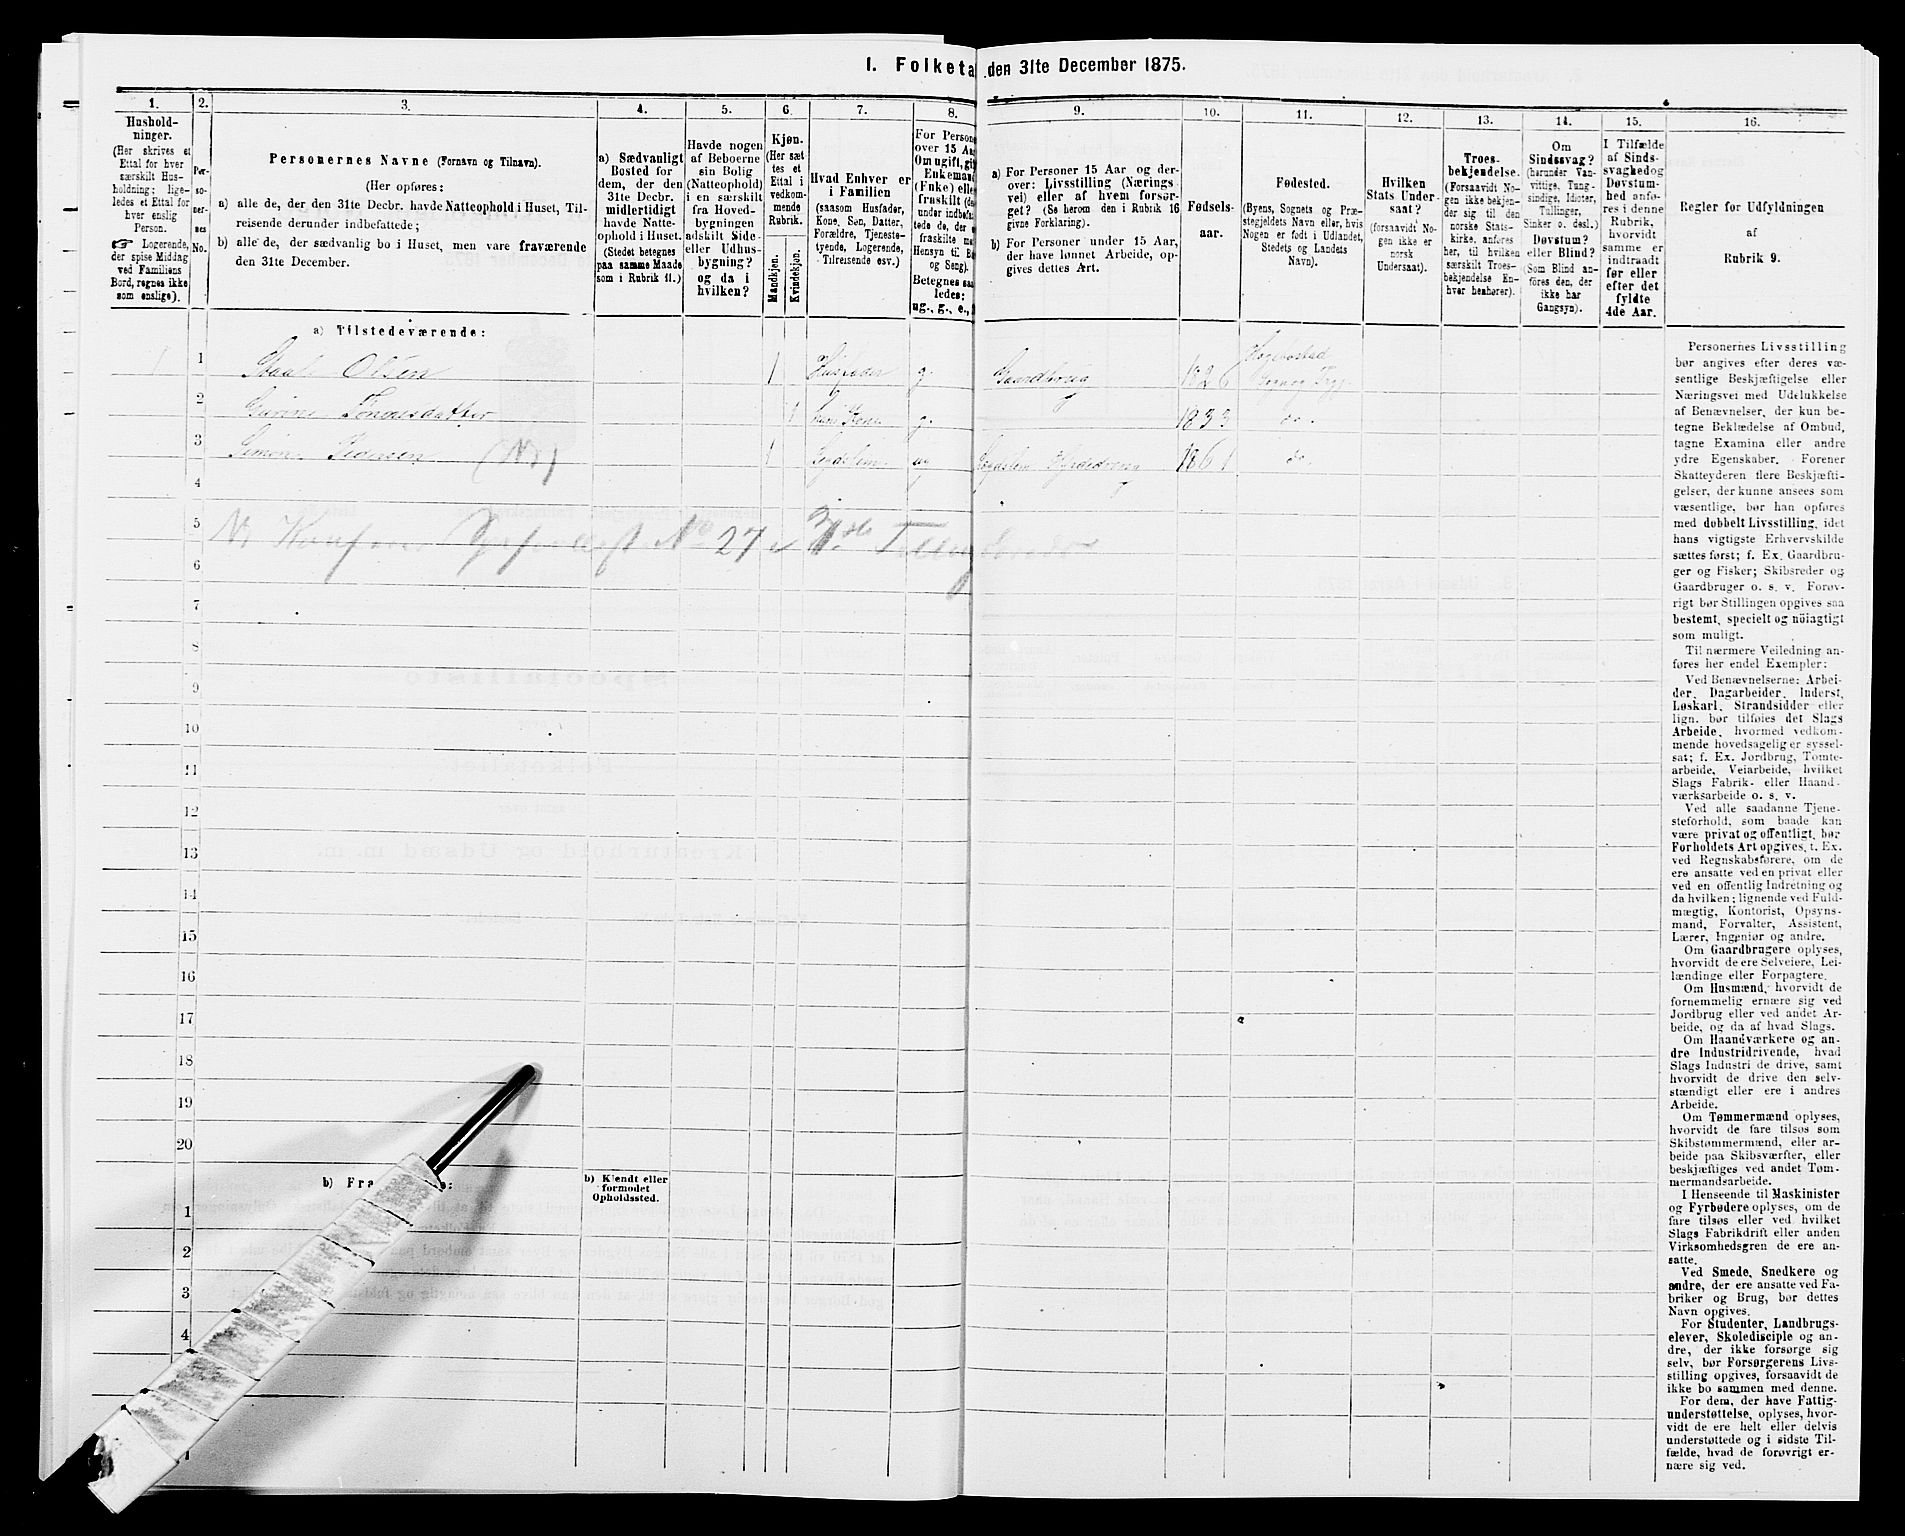 I. Folketa den 31te December 1875.
1. 2. 3. 4. 5. 6. 7. 8. 9. 10. 11. 12. 13. 14. 15. 16.
Hushold-
ninger.
(Her skrives et
Ettal for hver
særskilt Hus-
holdning; lige-
ledes et Ettal for
hver enslig
Person.
☞ Logerende,
der spise Middag
ved Familiens
Bord, regnes ikke
som enslige).
Per-
so-
ner-
nes
No.
Personernes Navne (Fornavn og Tilnavn).
(Her opføres:
a) alle de, der den 31te Decbr. havde Natteophold i Huset, Til-
reisende derunder indbefattede;
b) alle de, der sædvanlig bo i Huset, men vare fraværende
den 31te December.
a) Sædvanligt
Bosted for
dem, der den
31te Decbr.
midlertidigt
havde Natte-
ophold i Huset.
(Stedet betegnes
paa samme Maade
som i Rubrik 11.)
Havde nogen
af Beboerne
sin Bolig
(Natteophold)
i en særskilt
fra Hoved-
bygningen
adskilt Side-
eller Udhus-
bygning?
og da i
hvilken?
Kjøn.
(Her sæt
tes et
Ettal i
vedkom-
mende
Rubrik.
Mandkjøn.
Kvindekjøn.
Hvad Enhver er
i Familien
(saasom Husfader,
Kone, Søn, Datter,
Forældre, Tjeneste-
tyende, Logerende,
Tilreisende osv.)
For Persone
over 15 Aar
Om ugift, gi
Enkemand
(Enke) elle
fraskilt (de
under indbefat
tede de, der e
fraskilte me
Hensyn til B
og Seng).
Betegnes saa
ledes:
ug., g., e.,
a) For Personer 15 Aar og der-
over: Livsstilling (Nærings
vei) eller af hvem forsør-
get? (Se herom den i Rubrik 16
givne Forklaring).
b) For Personer under 15 Aar,
der have lønnet Arbeide, op-
gives dettes Art.
Fødsels-
aar.
Fødested.
(Byens, Sognets og Præ-
stegjeldets Navn eller, hvis
Nogen er født i Udlandet,
Stedets og Landets
Navn).
Hvilken
Stats Under-
saat?
(forsaavidt No-
gen ikke er
norsk
Undersaat).
Troes-
bekjendelse.
(Forsaavidt No-
gen ikke bekjen-
der sig til den
norske Stats-
kirke, anføres
her, til hvilken
særskilt Troes-
bekjendelse En-
hver henhører).
Om
Sindssvag?
(herunder Van-
vittige, Tung-
sindige, Idioter,
Tullinger,
Sinker o. desl.)
Døvstum?
eller Blind?
(Som Blind an-
føres den, der
ikke har
Gangsyn).
I Tilfælde
af Sinds-
svaghed og
Døvstum-
hed anfø-
res i denne
Rubrik,
hvorvidt
samme er
indtraadt
før eller
efter det
fyldte
4de Aar.
Regler for Udfyldningen
af
Rubrik 9.
a) Tilstedeværende:
1 1 Staale Olsen 1 Husfader g. Gaardbrug 1826
2 Tønnesdatter 1 Kone g. 1833 do.
3 Simon Pedersen 1 ug 1861 do.
4
5 No 27
6
7
8
9
10
11
12
13
14
15
16
17
18
19
20
b) Fra e:
b) Kjendt eller
formodet
Opholdssted.
1
2
3
4
Personernes Livsstilling
bør angives efter deres væ-
sentlige Beskjæftigelse eller
Næringsvei med Udelukkelse
af Benævnelser, der kun be-
tegne Beklædelse af Ombud,
tagne Examina eller andre
ydre Egenskaber. Forener
Skatteyderen flere Beskjæfti-
gelser, der kunne ansees som
væsentlige, bør han opføres
med dobbelt Livsstilling, idet
hans vigtigste Erhvervskilde
sættes først; f. Ex. Gaardbru-
ger og Fisker; Skibsreder og
Gaardbruger o. s. v. Forøv-
rigt bør Stillingen opgives saa
bestemt, specielt og nöiagtigt
som muligt.
Til nærmere Veiledning an-
føres her endel Exempler:
Ved Benævnelserne: Arbei-
der, Dagarbeider, Inderst,
Løskarl, Strandsidder eller
lign. bør tilføies det Slags
Arbeide, hvormed vedkom-
mende hovedsagelig er syssel-
sat; f. Ex. Jordbrug, Tomte-
arbeide, Veiarbeide, hvilket
Slags Fabrik- eller Haand-
værksarbeide o. s. v.
Ved alle saadanne Tjene-
steforhold, som baade kan
være privat og offentligt, bør
Forholdets Art opgives, t. Ex.
ved Regnskabsførere, om de
ere ansatte ved en privat eller
ved en offentlig Indretning og
da hvilken; lignende ved Fuld-
mægtig, Kontorist, Opsyns-
mand, Forvalter, Assistent,
Lærer, Ingeniør og andre.
Om Gaardbrugere oplyses,
hvorvidt de ere Selveiere, Lei-
lændinge eller Forpagtere.
Om Husmænd, hvorvidt de
fornemmelig ernære sig ved
Jordbrug eller ved andet Ar-
beide, og da af hvad Slags.
Om Haandværkere og an-
dre Industridrivende, hvad
Slags Industri de drive, samt
hvorvidt de drive den selv-
stændigt eller ere i andres
Arbeide.
Om Tømmermænd oplyses,
hvorvidt de fare tilsøs som
Skibstømmermænd, eller ar-
beide paa Skibsværfter, eller
beskjæftiges ved andet Tøm-
mermandsarbeide.
I Henseende til Maskinister
og Fyrbødere oplyses, om de
fare tilsøs eller ved hvilket
Slags Fabrikdrift eller anden
Virksomhedsgren de ere an-
satte.
Ved Smede, Snedkere og
andre, der ere ansatte ved Fa-
briker og Brug, bør dettes
Navn opgives.
For Studenter, Landbrugs-
elever, Skoledisciple og an-
dre, der ikke forsørge sig
selv, bør Forsørgerens Livs-
stilling opgives, forsaavidt de
ikke bo sammen med denne.
For dem, der have Fattig-
understøttelse, oplyses, hvor-
vidt de ere helt eller delvis
understøttede og i sidste Til-
fælde, hvad de forøvrigt er-
nære sig ved.